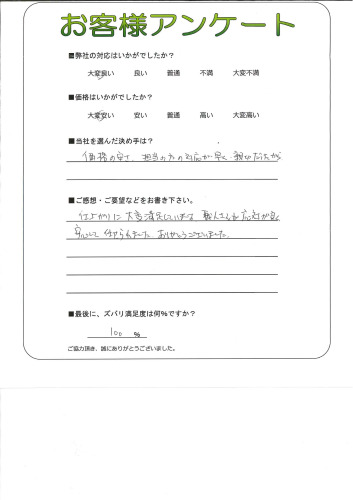 お客様アンケート
■弊社の対応はいかがでしたか？
大変良い 良い 普通 不満 大変不満
■価格はいかがでしたか？
大変安い 安い 普通 高い 大変高い
■当社を選んだ決め手は？
価格の安さ、担当の方の対応が早く親切だったから
■ご感想・ご要望などをお書き下さい。
仕上がりに大変満足しています。職人さんも応対が良く
安心して任せられました。ありがとうございました。
■最後に、ズバリ満足度は何％ですか？
100 ％
ご協力頂き、誠にありがとうございました。